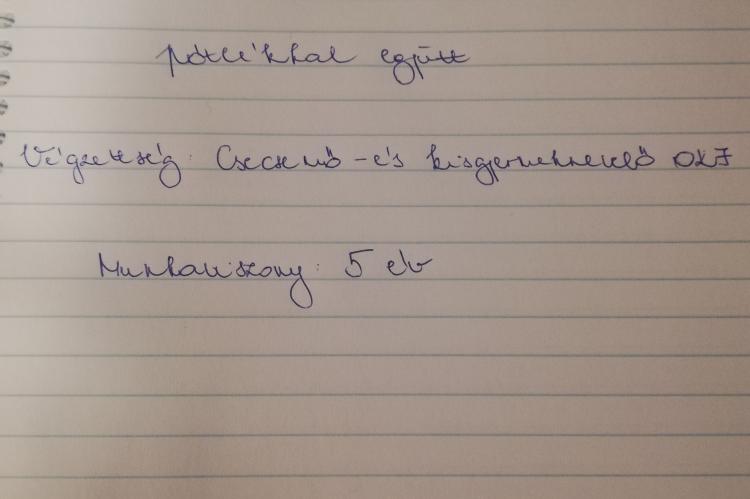 pótlékkal együtt
Végzettség: Csecsemő-és kisgyermeknevelő OKJ
Munkaviszony: 5 év